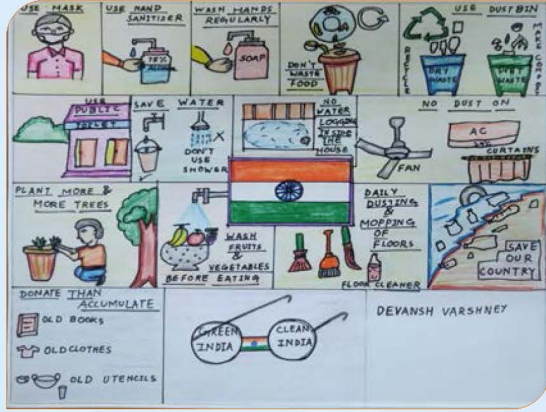 USE MASK
USE HAND
SANITISER
WASH HANDS
REGULARLY
SOAP
DON'T
WASTE
FOOD
USE DUSTBIN
RECYCLE
DRY
WASTE
WET
WASTE
USE
PUBLIC
TOILET
SAVE WATER
DON'T
USE
SHOWER
NO
WATER
LOGGING
INSIDE
THE
HOUSE
NO DUST ON
FAN
AC
CURTAINS
PLANT MORE &
MORE TREES
WASH
FRUITS
&
VEGETABLES
BEFORE EATING
DAILY
DUSTING
&
MOPPING
OF
FLOORS
FLOOR CLEANER
SAVE
OUR
COUNTRY
DONATE THAN
ACCUMULATE
OLD BOOKS
OLD CLOTHES
OLD UTENCILS
GREEN
INDIA
CLEAN
INDIA
DEVANSH VARSHNEY